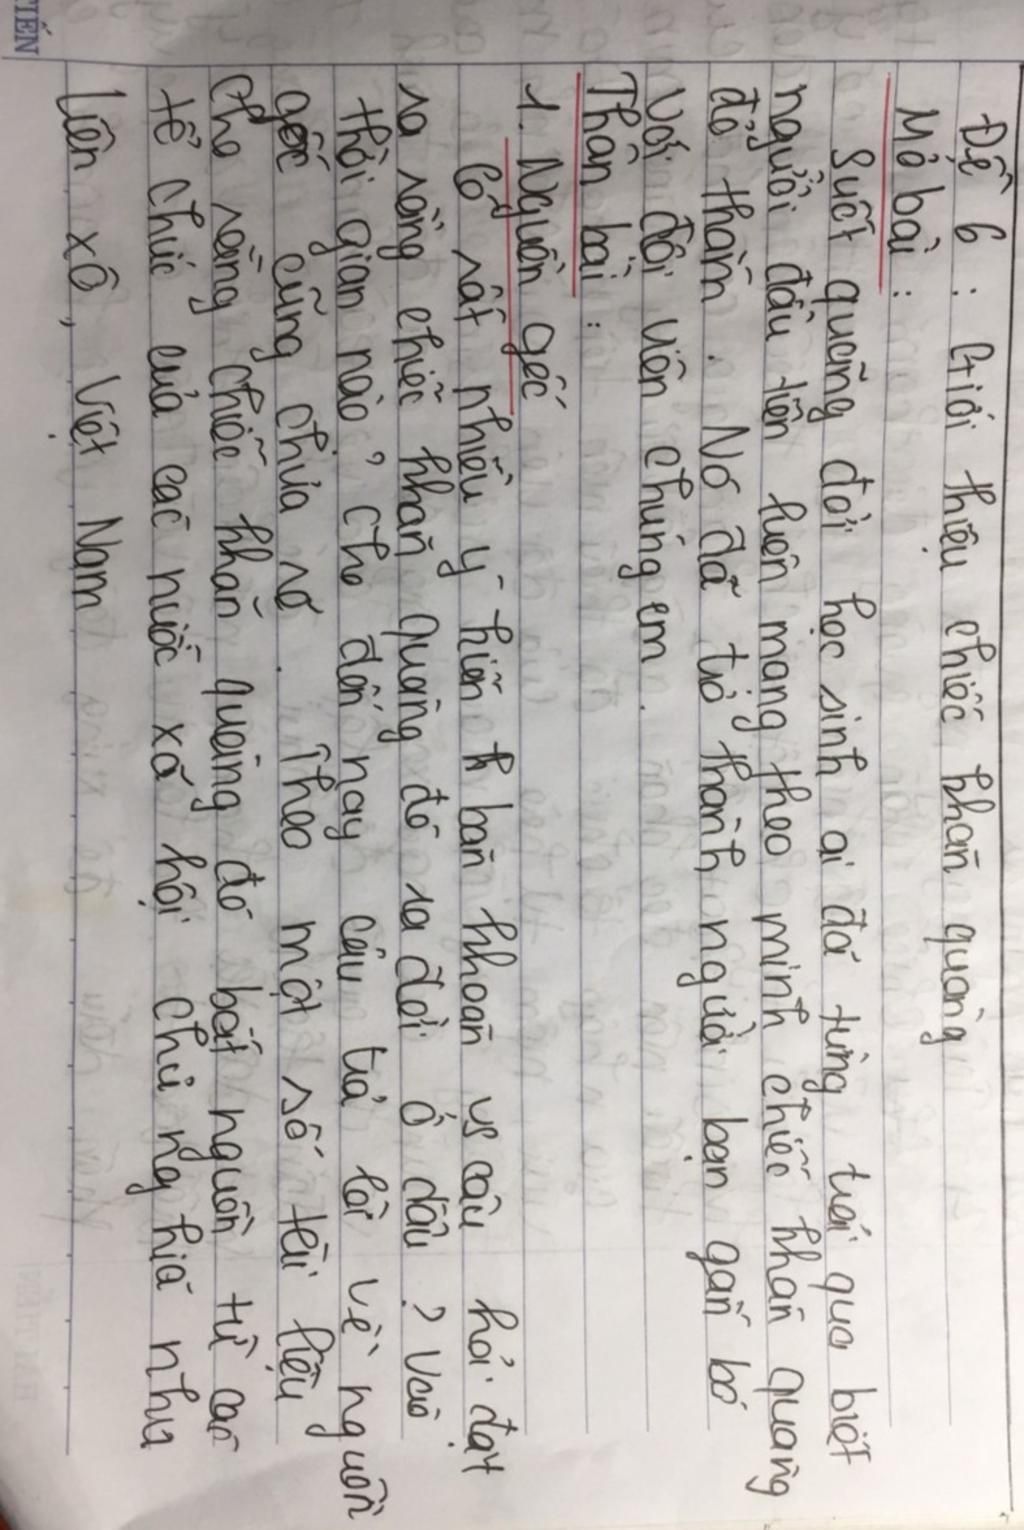 TIẾN
Đề 6 : Giới thiệu chiếc khăn quàng
Mở bài :
Suốt quãng đời học sinh ai đã từng trải qua biết
người đầu tiên luôn mang theo mình chiếc khăn quàng
đỏ thắm . Nó đã trở thành người bạn gắn bó
với đội viên chúng em .
Thân bài :
1. Nguồn gốc
Có rất nhiều ý kiến băn khoăn vs câu hỏi đặt
ra rằng chiếc khăn quàng đỏ ra đời ở đâu ? Vào
thời gian nào ? Cho đến nay câu trả lời về nguồn
gốc cũng chưa rõ . Theo một số tài liệu
cho rằng chiếc khăn quàng đỏ bắt nguồn từ các
tổ chức của các nước xã hội chủ nghĩa như
Liên xô , Việt Nam